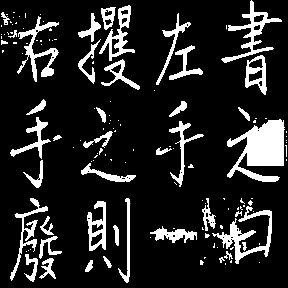 書之曰
左手
攫之則
右手廢